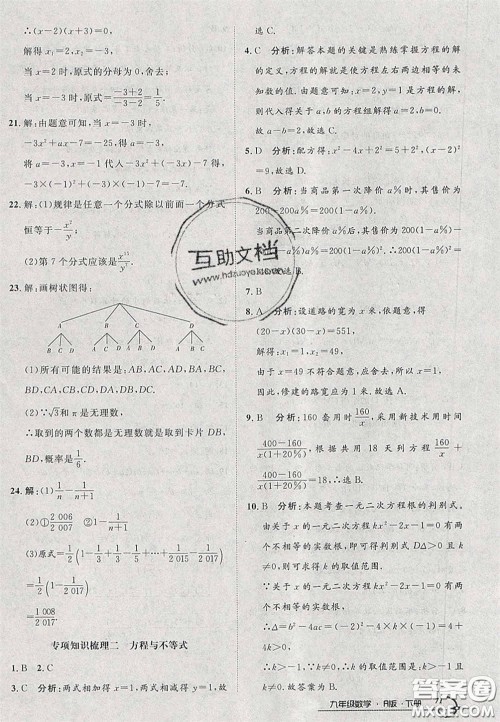 ∴(x−2)(x+3)=0,
解得 x₁=2,x₂=−3,
当 x=2 时,原式的分母为 0,舍去;
当 x=−3 时,原式=(−3+2)/(−3−2)=1/5.
21. 解:由题意可知,当 a=−1,x=−3 时,
−3x²+ax−7=−31.
将 a=−1,x=−3 代入
−3×(−3)²+(−1)×(−3)−7=−31.
22. 解:(1)规律是任意一个分式除以前面一个分式
恒等于−x²/y;
(2)第 7 个分式应该是 x¹⁵/y⁷.
23. 解:画树状图得:
A B C D
B C D A C D A B D A B C
(1)所有可能的结果是:AB,AC,AD,BA,BC,
BD,CA,CB,CD,DA,DB,DC.
(2)∵√3和π是无理数,
∴取到的两个数都是无理数就是取到卡片 DB,
概率为1/6.
24. 解:(1)1/n−1/(n+1)
(2)①2 006/2 007 ②n/(n+1)
(3)原式=1/2(1−1/3+1/3−1/5+…+1/2 015−
1/2 017)=1/2(1−1/2 017)=1/2×2 016/2 017=
1 008/2 017.
专项知识梳理二 方程与不等式
1. B 2. C
3. C 分析:两式相加得 x=1,两式相减得 y=−1,
故选 C.
4. C 分析:解答本题的关键是熟练掌握方程的解
的定义,方程的解就是使方程左右两边相等的未
知数的值.由题意,把 x=2,y=1 是方程组的解,
则代入得关于 a、b 的方程组解得 a=2,b=0.
故 a−b=2,故选 C.
5. D 分析:配方得:x²−4x+2²=5+2²,(x−2)²
=9,故选 D.
6. B 分析:当商品第一次降价 a%时,其售价为
200−200a%=200(1−a%);
当商品第二次降价 a%时,其售价为
200(1−a%)−200(1−a%)a%=200(1−a%)²,
7. B
8. A 分析:设道路的宽为 x 米,依题意,得
(20−x)(30−x)=551,
解得:x₁=1,x₂=49.
由于 x=49 不符合题意,应舍去,
因此,修建的路宽应为 1 米.故选 A.
9. B 分析:160 套用时160/x,采用新技术用时间
(400−160)/(x(1+20%)),根据共用 18 天列方程160/x+
(400−160)/(x(1+20%))=18,故选 B.
10. B 分析:本题考查一元二次方程根的判别式,
由关于 x 的一元二次方程 kx²−2x−1=0 有两
个不相等的实数根,可得 Δ>0,且
k≠0,据此可得 k 的取值范围.
∵关于 x 的一元二次方程 kx²−2x−1=0 有两
个不相等的实数根,
∴Δ=b²−4ac=(−2)²−4k×(−1)>0,且
k≠0,
互助文档
九年级数学·R版·下册